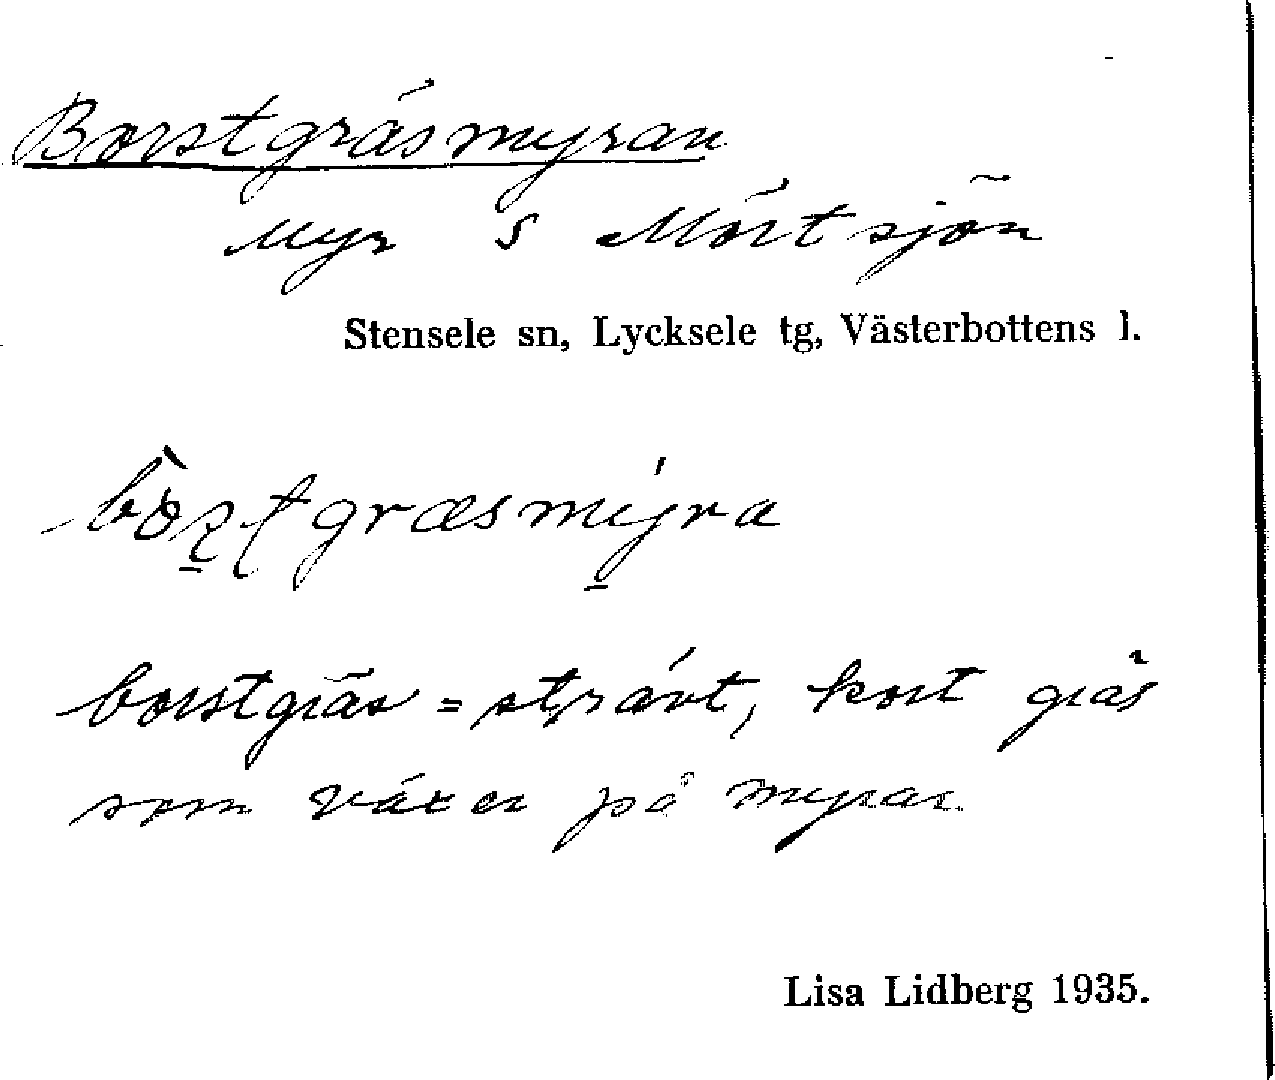 Borstgräsmyran
Myr S Mörtsjön
Stensele sn, Lycksele tg, Västerbottens l.
borstgräs = strävt, kort gräs
som växer på myrar.
Lisa Lidberg 1935.